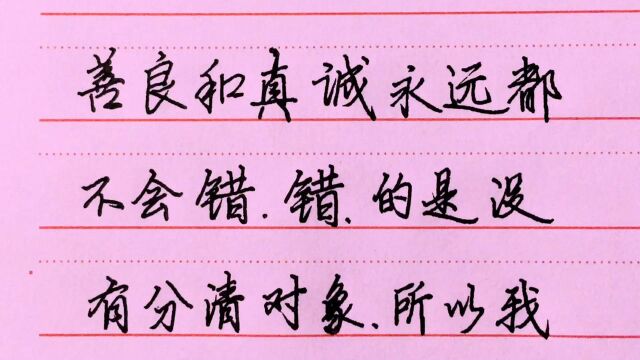 善良和真诚永远都
不会错.错.的是没
有分清对象.所以我